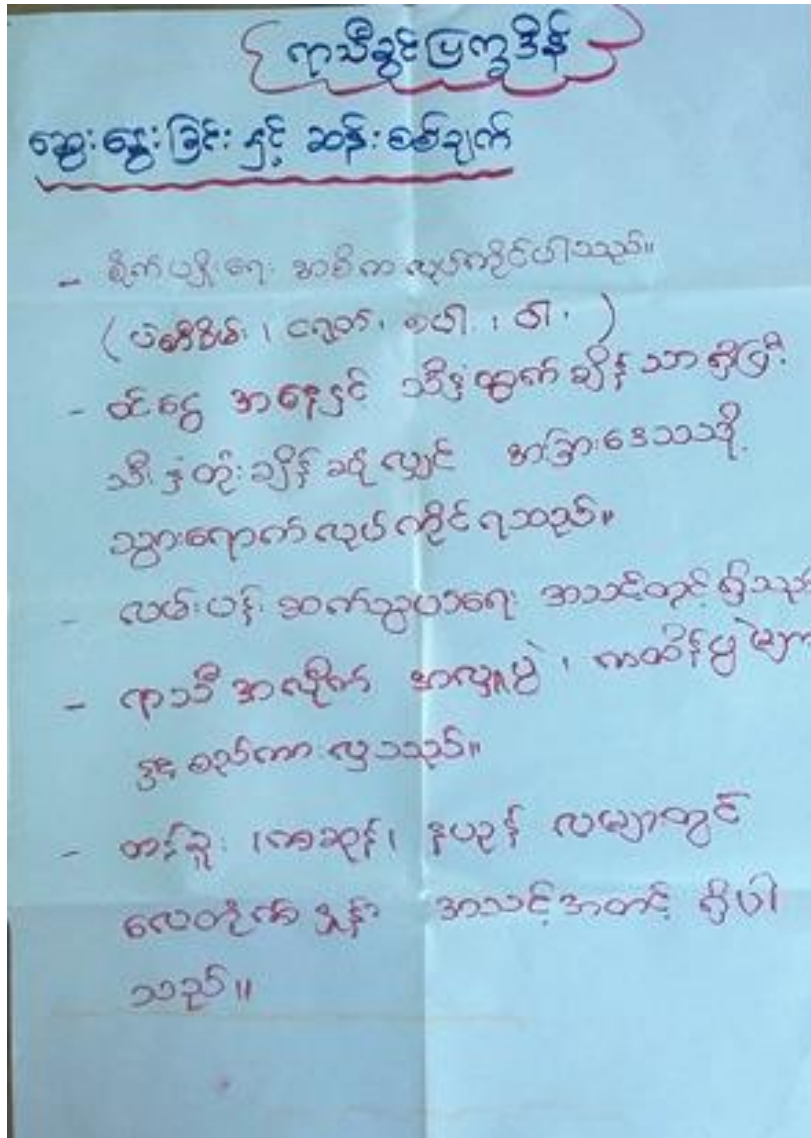 ရာသီခွင်ပြက္ခဒိန်
ဆွေးနွေးခြင်း နှင့် ဆန်းစစ်ချက်
- စိုက်ပျိုးရေး အဓိက လုပ်ကိုင်ပါသည်။
( ပဲတီစိမ်း ၊ ငရုတ် ၊ စပါး ၊ ဝါ ၊ )
- ဝင်ငွေ အနေနှင့် သီးနှံထွက်ချိန် သာ ရှိပြီး
သီးနှံတုံးချိန် ဆိုလျှင် အခြားဒေသသို့
သွားရောက် လုပ်ကိုင် ရသည်။
- လမ်းပန်း ဆက်သွယ်ရေး အသင့်တင့် ရှိသည်
- ရာသီ အလိုက် အလှူပွဲ ၊ ကထိန်ပွဲ များ
စည်ကားလှသည်။
- တန်ခူး ၊ ကဆုန် ၊ နယုန် လများတွင်
လေတိုက်နှုန်း အသင့်အတင့် ရှိပါ
သည်။